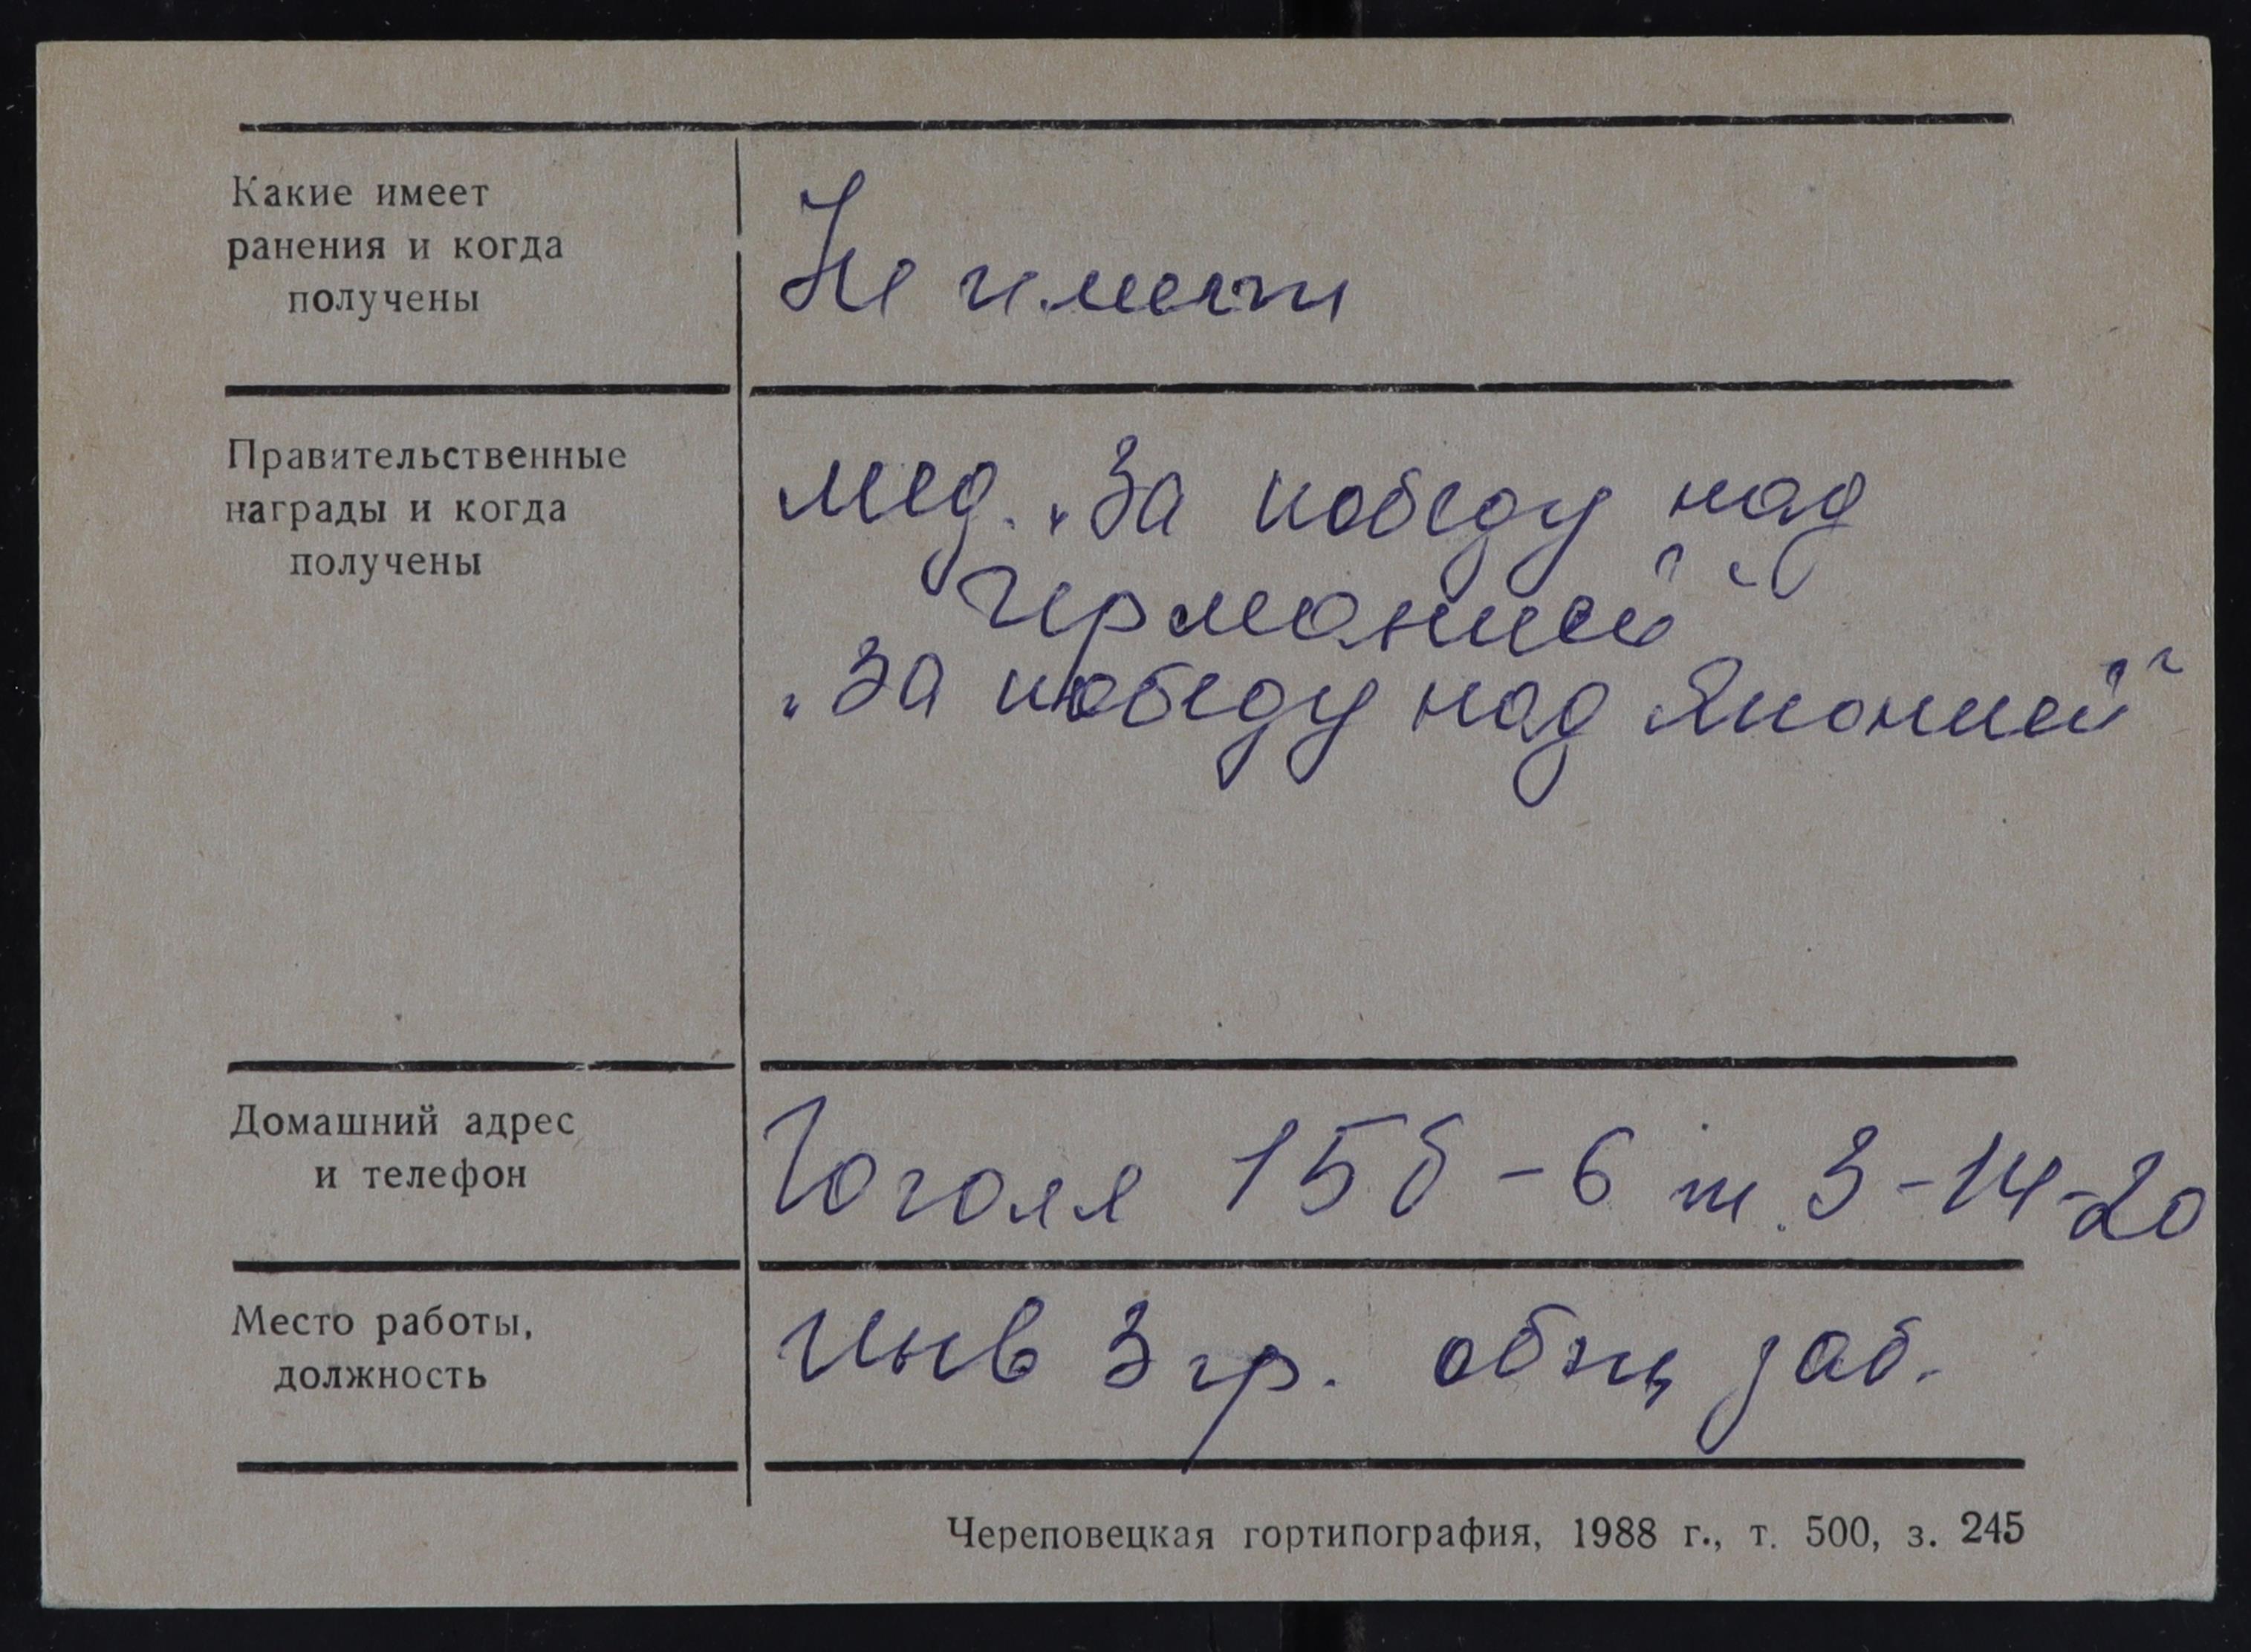 Какие имеет
ранения и когда
получены
Не имеет
Правительственные
награды и когда
получены
мед. „За победу над
Германией“
„За победу над Японией“
Домашний адрес
и телефон
Гоголя 15б-6 т. 3-14-20
Место работы,
должность
Инв 3 гр. общ заб.
Череповецкая гортипография, 1988 г., т. 500, з. 245